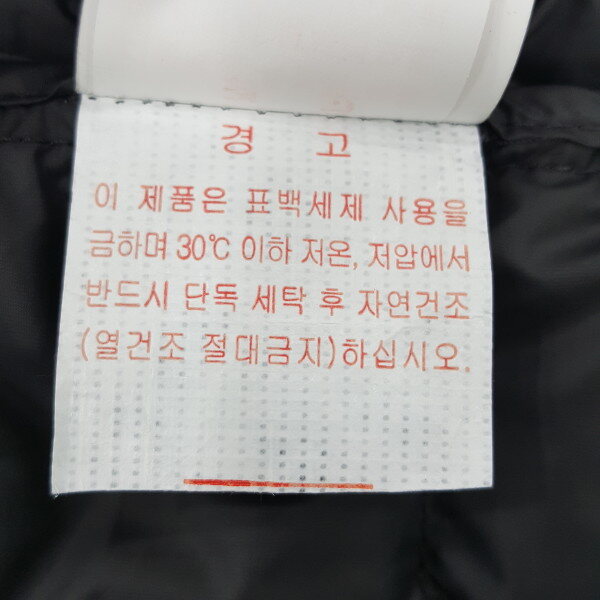 경 고
이 제품은 표백세제 사용을
금하며 30℃ 이하 저온, 저압에서
반드시 단독 세탁 후 자연건조
(열건조 절대금지)하십시오.